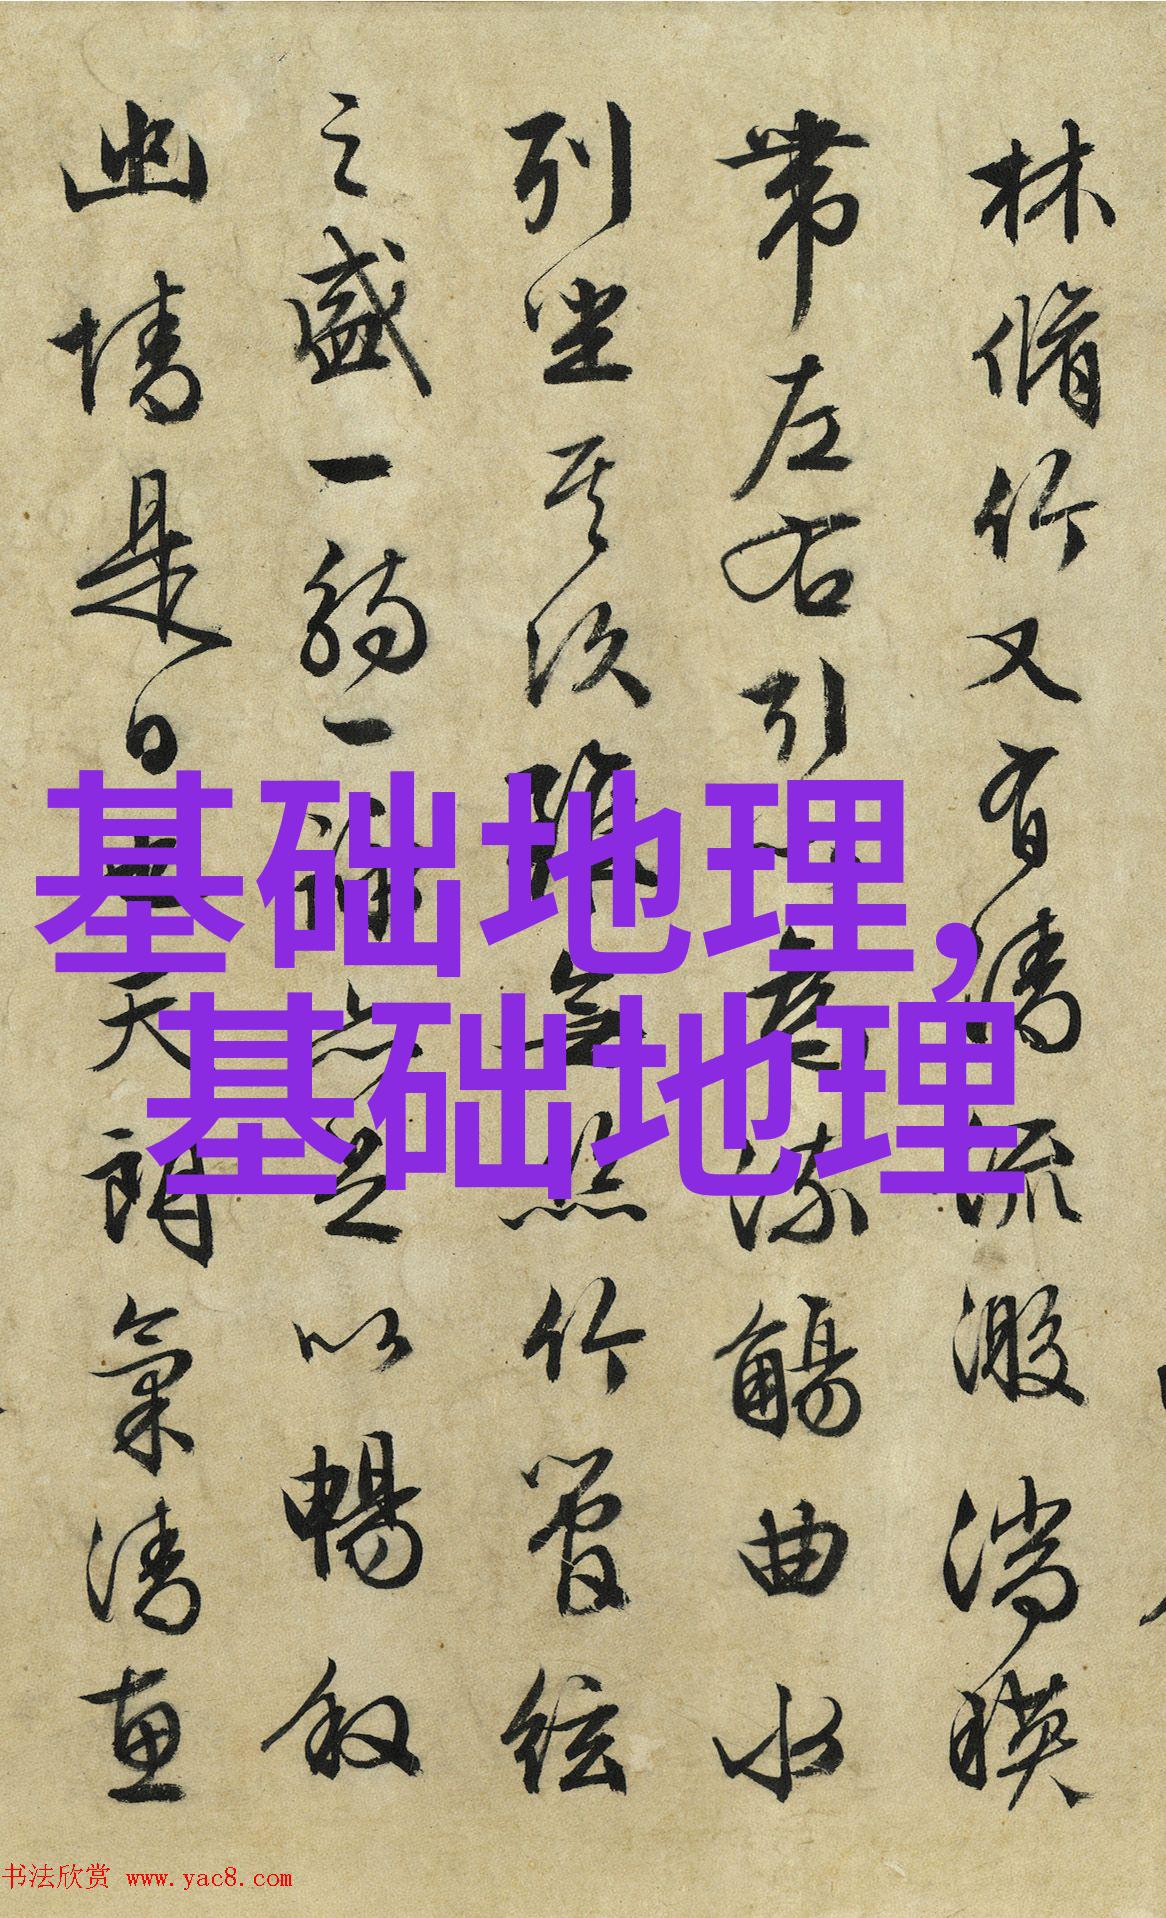 林脩竹又有清流激湍暎
帶左右引以為流觴曲水
列坐其次雖無絲竹管弦
之盛一觴一詠亦足以暢叙
幽情是日也天朗氣清惠
基础地理,
基础地理
书法欣赏 www.yac8.com